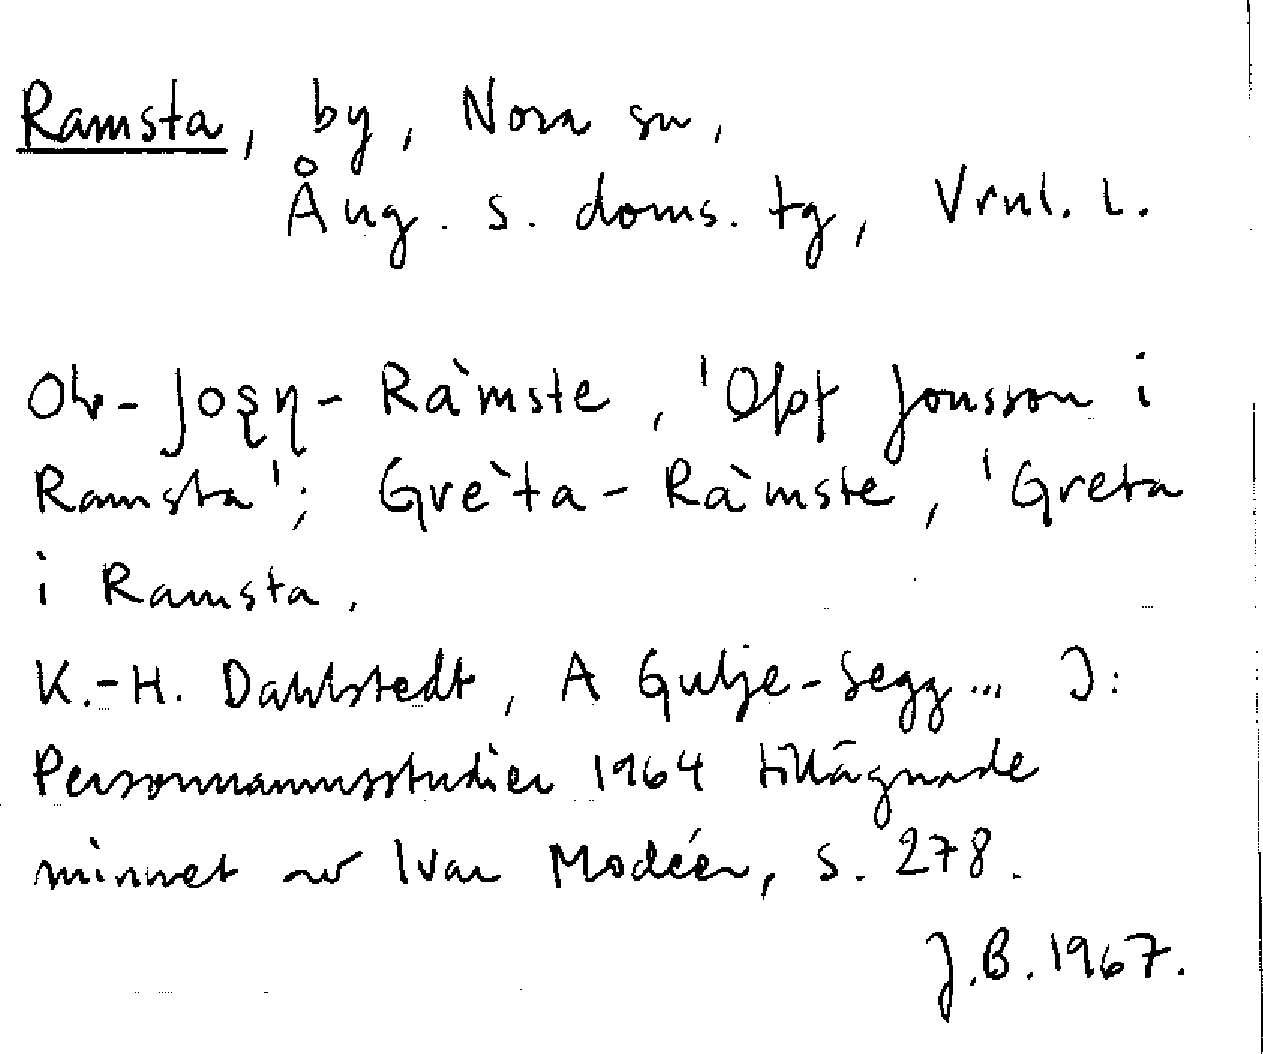 Ramsta, by, Nora sn,
Ång. s. doms. tg, Vrnl. L.
Ol- Joʂɳ- Ràmste, 'Olof Jonsson i
Ramsta'; Grèta-Ràmste, 'Greta
i Ramsta.
K.-H. Dahlstedt, A Gulje-Segg... I:
Personnamnsstudier 1964 tillägnade
minnet av Ivar Modéer, s. 278.
J.B. 1967.